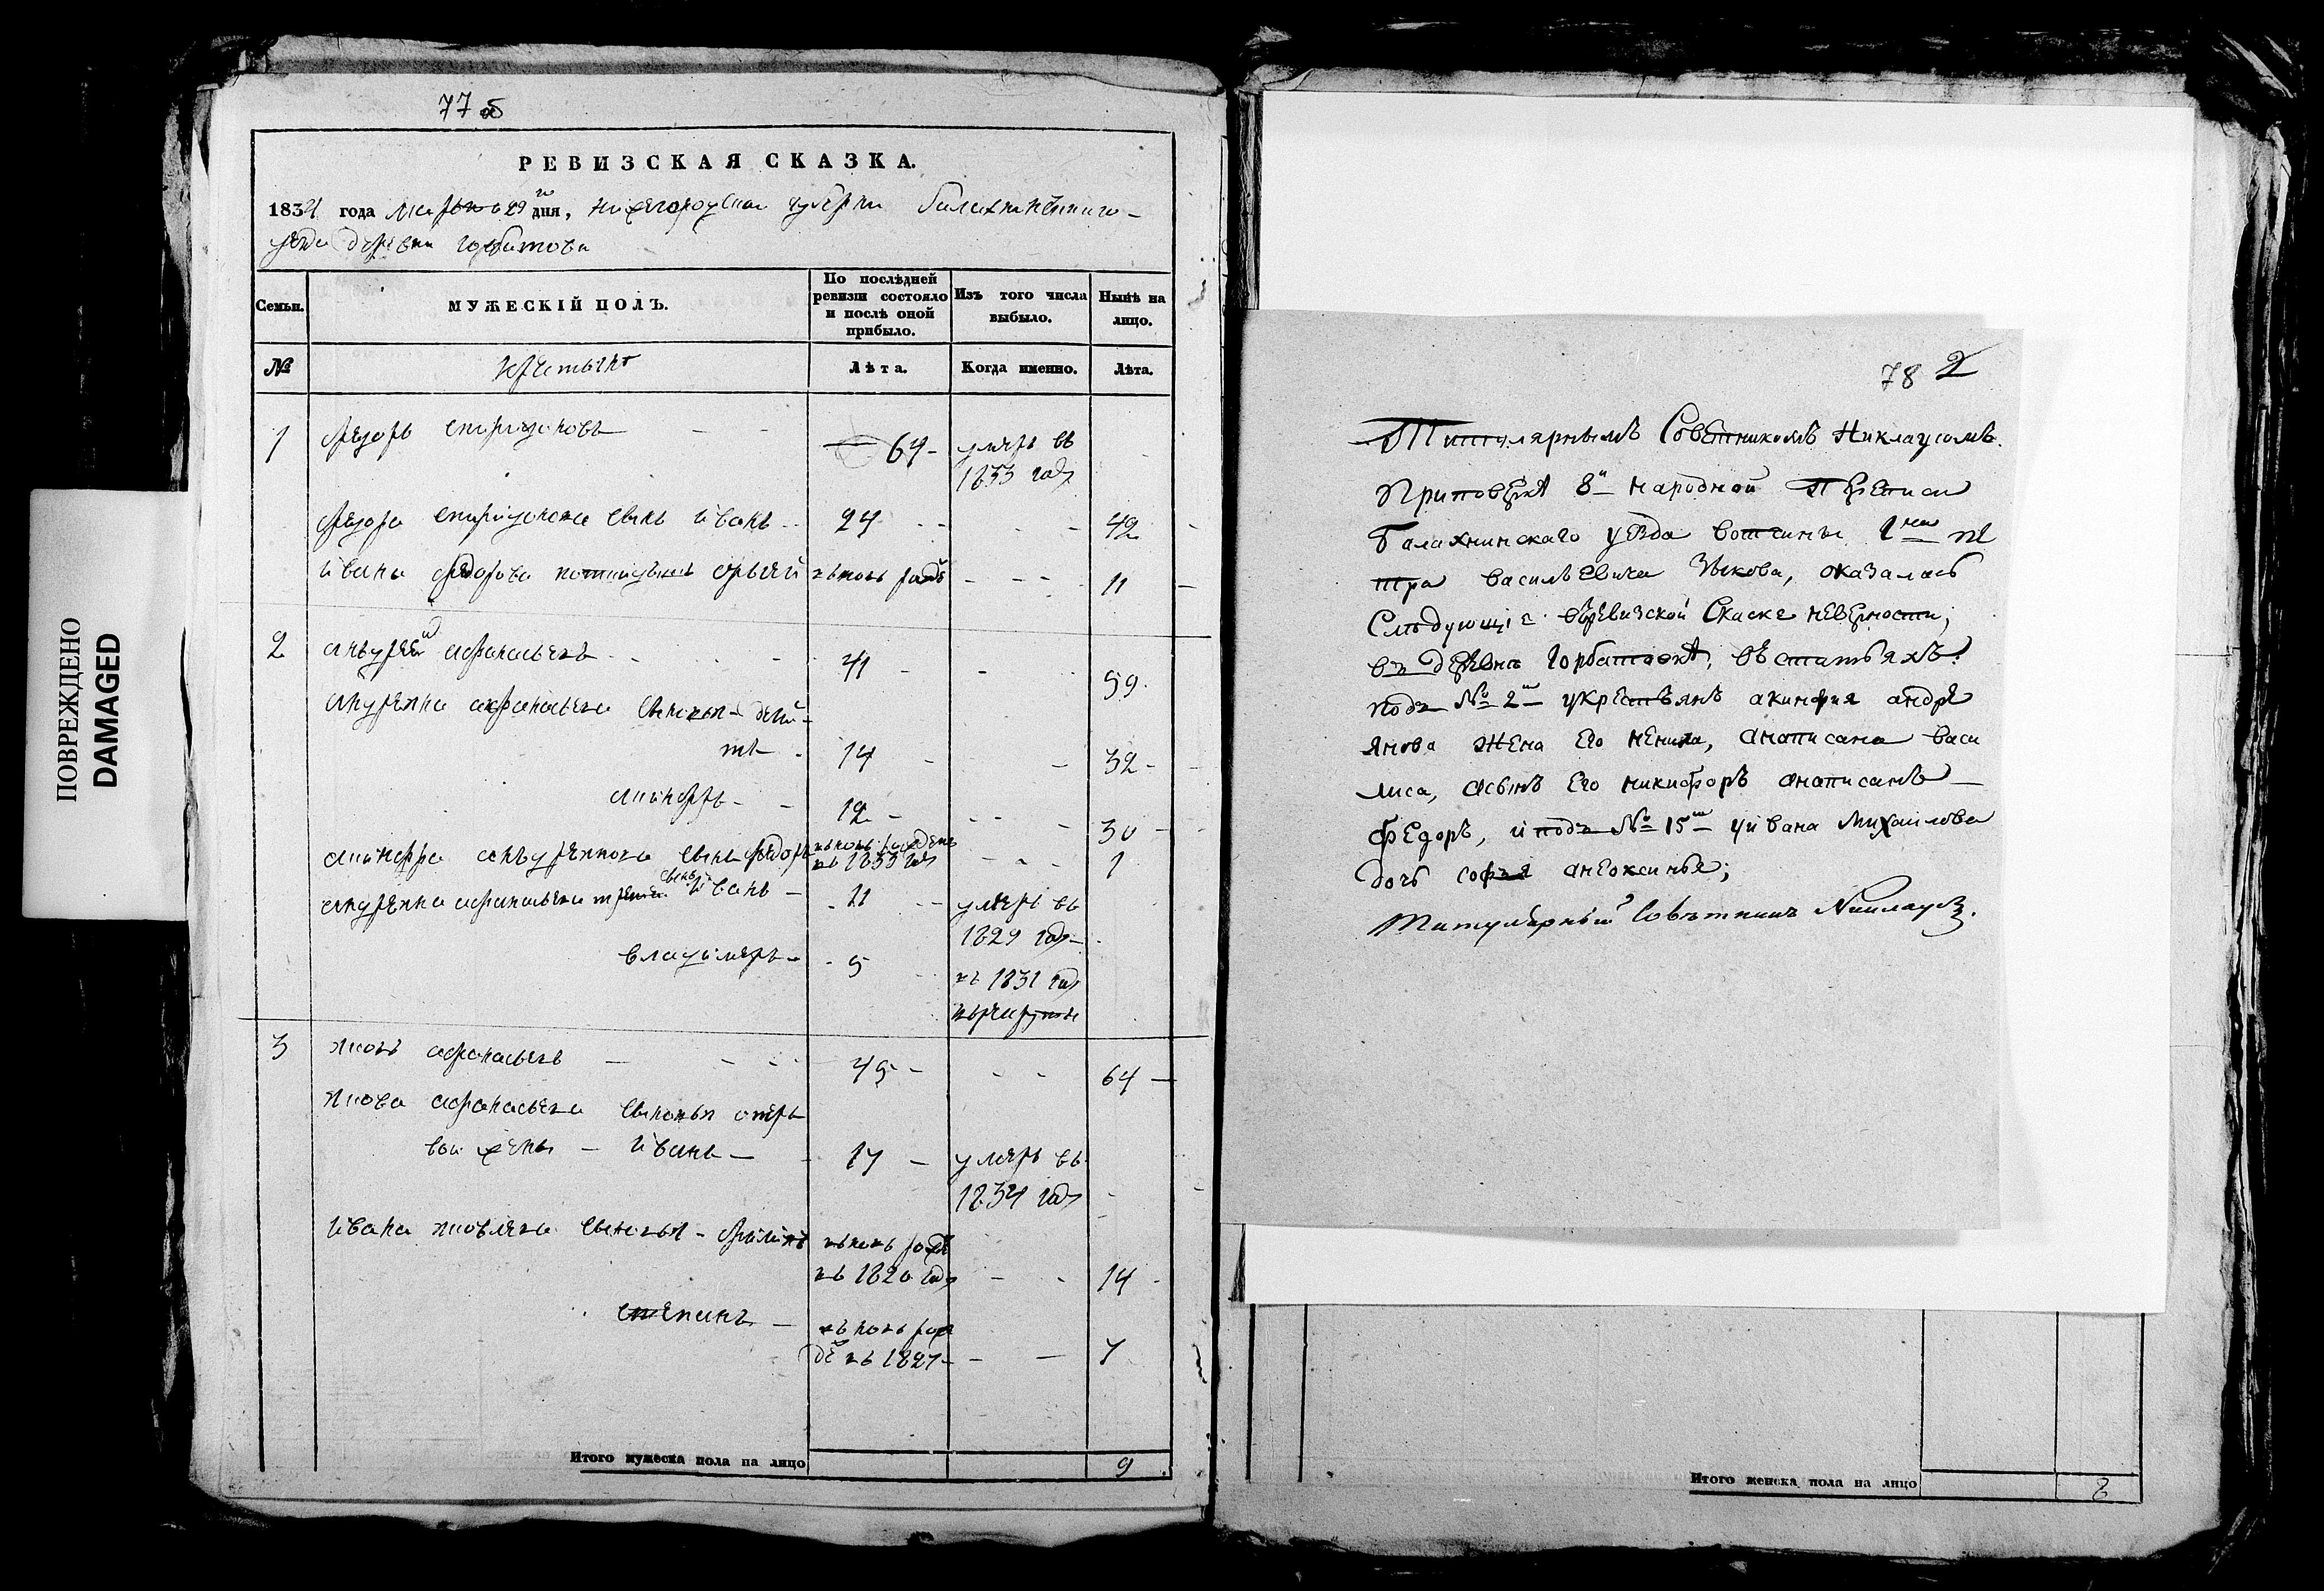 ПОВРЕЖДЕНО
DAMAGED
77 об
РЕВИЗСКАЯ СКАЗКА.
1834 года марта 29 го дня, нижегородской губерни балахнинскаго
уезда деревни горбатова
Семьи.
МУЖЕСКІЙ ПОЛЪ.
По послѣдней ревизіи состояло и послѣ оной прибыло.
Изъ того числа выбыло.
Нынѣ на лицо.
№
крестьянъ
Лѣта.
Когда именно.
Лѣта.
1 федоръ спиридоновъ 64 умеръ въ
1833 году
федора спиридонова сынъ иванъ 24 42
ивана федорова сергей вновь рожде 11
2 андрей афонасьевъ 41 59
андреяна афонасьева сыновья
14 32
акинфъ 12 30
акинфа андреянова сынъ федоръ вновь рожденъ въ 1833 году 1
андреяна афонасьева третей сынъ иванъ 11 умеръ въ
1829 году
владимеръ 9 въ 1831 году
врекруты
3 яковъ афонасьевъ 49 64
якова афонасьева сыновья отпер
вой жены иванъ 17 умеръ въ
1834 году
ивана яковлева сыновья филипъ вновь рожде
въ 1820 году 14
степанъ вновь рож
де въ 1827 7
Итого мужеска пола на лицо 9
78 2
Титулярнымъ Советникомъ Никлаусомъ
Приповерке 8й народной Переписи
балахнинскаго уезда вотчины пе
тра васильевича Зыкова, оказалось
Следующіе вревизской Скаске неверности;
въ деревне Горбатове, въ статьяхъ:
подъ № 2м укрестьянъ акинфия андре
янова жена Его ненила, анаписана васи
лиса, асынъ Его никифоръ анаписанъ
федоръ, и подъ № 15м уивана Михаилова
дочь софья анеоксинья;
Титулярный Советникъ Никлаусъ.
Итого женска пола на лицо 8